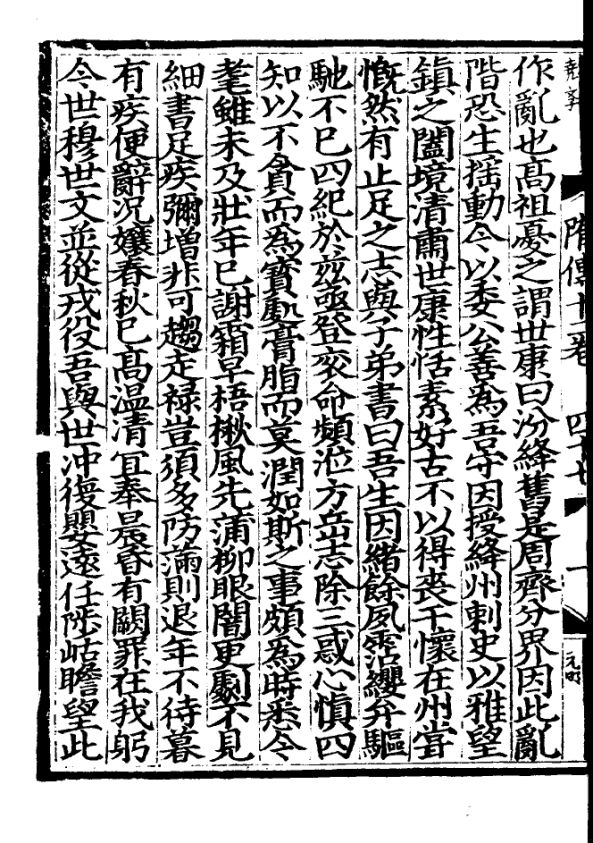 隋傳十二卷 四十七
作亂也高祖憂之謂世康曰汾絳舊是周齊分界因此亂
階恐生搖動今以委公善為吾守因授絳州刺史以雅望
鎮之闔境清肅世康性恬素好古不以得喪干懷在州嘗
慨然有止足之志與子弟書曰吾生因緒餘夙霑纓弁驅
馳不已四紀於茲亟登衮命頻涖方岳志除三惑心慎四
知以不貪而為寶處膏脂而莫潤如斯之事頗為時悉今
耄雖未及壯年已謝霜早梧楸風先蒲柳眼闇更劇不見
細書足疾彌增非可趨走禄豈須多防滿則退年不待暮
有疾便辭況孃春秋已高温清冝奉晨昏有闕罪在我躬
今世穆世文並從戎役吾與世冲復嬰遠任陟岵瞻望此